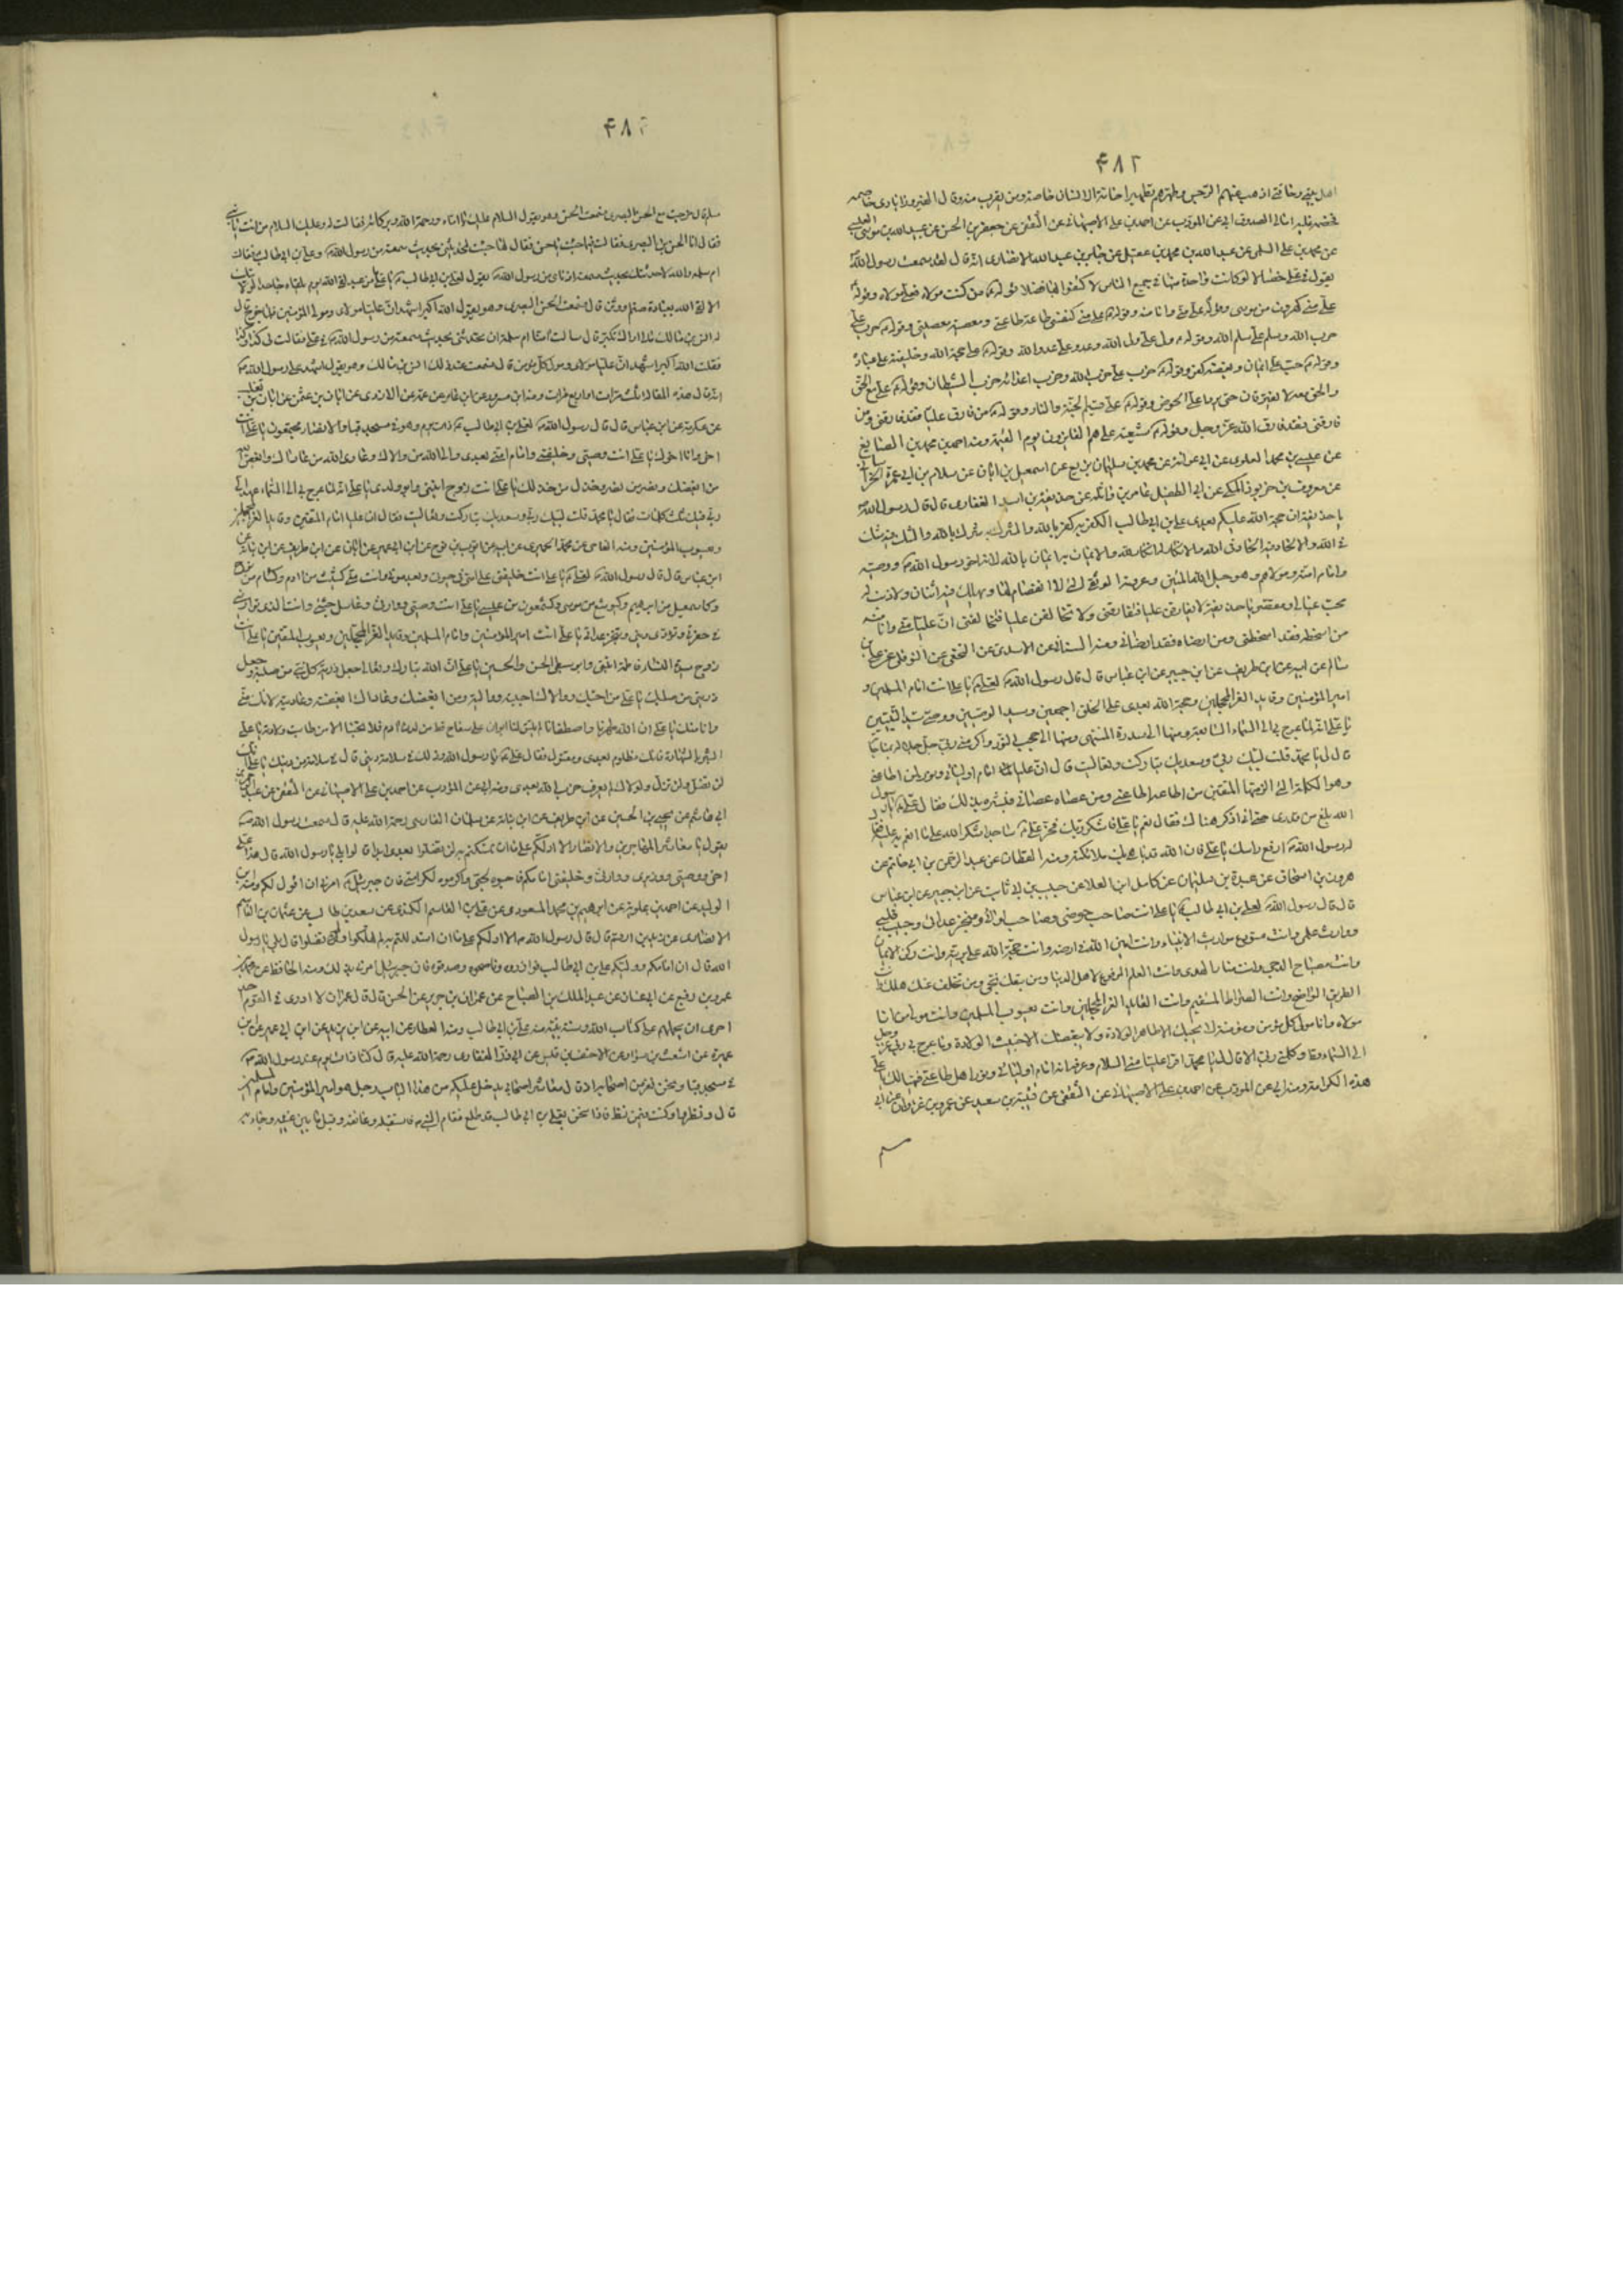 ۴۸۲
اهل بيتي وخاصتي اذهب عنهم الرجس وطهرهم تطهيرا خاصة الانسان خاصته ومن يقرب منه وقال الفيروزابادي
امالي الصدوق ابي عن المؤدب عن احمد بن علي الاصبهاني عن الثقفي عن جعفر بن الحسن عن عبيد الله بن موسى
عن محمد بن علي السلمي عن عبد الله بن محمد بن عقيل عن جابر بن عبد الله الانصاري انه قال لقد سمعت رسول الله
يقول في علي خصالا لو كانت واحدة منها في جميع الناس لاكتفوا بها فضلا قوله من كنت مولاه فعلي مولاه وقوله
علي مني كهرون من موسى وقوله علي مني وانا منه وقوله علي مني كنفسي طاعته طاعتي ومعصيته معصيتي وقوله حرب علي
حرب الله وسلم علي سلم الله وقوله ولي علي ولي الله وعدو علي عدو الله وقوله علي حجة الله وخليفته على عباده
وقوله حب علي ايمان وبغضه كفر وقوله حزب علي حزب الله وحزب اعدائه حزب الشيطان وقوله علي مع الحق
والحق معه لا يفترقان حتى يردا علي الحوض وقوله علي قسيم الجنة والنار وقوله من فارق عليا فقد فارقني ومن
فارقني فقد فارق الله عز وجل وقوله شيعة علي هم الفايزون يوم القيمة ومنه احمد بن محمد بن الصايغ
عن عيسى بن محمد العلوي عن ابي عوانة عن محمد بن سليمان بن بزيع عن اسمعيل بن ابان عن سلام بن ابي عمرة الخراساني
عن معروف بن خربوذ المكي عن ابي الطفيل عامر بن واثلة عن حذيفة بن اسيد الغفاري قال قال رسول الله
يا حذيفة ان حجة الله عليكم بعدي علي بن ابي طالب الكفر به كفر بالله والشرك به شرك بالله والشك فيه شك
في الله والالحاد فيه الحاد في الله والانكار له انكار لله والايمان به ايمان بالله لانه اخو رسول الله ووصيه
وامام امته ومولاهم وهو حبل الله المتين وعروته الوثقى التي لا انفصام لها وسيهلك فيه اثنان ولا ذنب له
محب غال ومقصر يا حذيفة لا تفارقن عليا فتفارقني ولا تخالفن عليا فتخالفني ان عليا مني وانا منه
من اسخطه فقد اسخطني ومن ارضاه فقد ارضاني ومنه السناني عن الاسدي عن النخعي عن النوفلي عن علي بن
سالم عن ابيه عن ابن طريف عن ابن جبير عن ابن عباس قال قال رسول الله لعلي يا علي انت امام المسلمين و
امير المؤمنين وقايد الغر المحجلين وحجة الله بعدي على الخلق اجمعين وسيد الوصيين ووصي سيد النبيين
يا علي انه لما عرج بي الى السماء السابعة ومنها الى سدرة المنتهى ومنها الى حجب النور واكرمني ربي جل جلاله بمناجاته
قال لي يا محمد قلت لبيك ربي وسعديك تباركت وتعاليت قال ان عليا امام اوليائي ونور لمن اطاعني
وهو الكلمة التي الزمتها المتقين من اطاعه اطاعني ومن عصاه عصاني فبشره بذلك فقال علي يا رسول
الله بلغ من قدري حتى اذكر هناك فقال نعم يا علي فاشكر ربك فخر علي ساجدا شكرا لله على ما انعم به عليه فقال
له رسول الله ارفع راسك يا علي فان الله قد باهى بك ملائكته ومنه القطان عن عبد الرحمن بن ابي حاتم عن
هرون بن اسحاق عن عبدة بن سليمان عن كامل ابن العلا عن حبيب بن ابي ثابت عن ابن جبير عن ابن عباس
قال قال رسول الله لعلي بن ابي طالب يا علي انت صاحب حوضي وصاحب لوائي ومنجز عداتي وحبيب قلبي
ووارث علمي وانت مستودع مواريث الانبياء وانت امين الله في ارضه وانت حجة الله على بريته وانت ركن الايمان
وانت مصباح الدجى وانت منار الهدى وانت العلم المرفوع لاهل الدنيا من تبعك نجى ومن تخلف عنك هلك وانت
الطريق الواضح وانت الصراط المستقيم وانت القايد الغر المحجلين وانت يعسوب المسلمين وانت مولى من انا
مولاه وانا مولى كل مؤمن ومؤمنة لا يحبك الا طاهر الولادة ولا يبغضك الا خبيث الولادة وما عرج بي ربي عز وجل
الى السماء قط وكلمني ربي الا قال لي يا محمد اقرا عليا مني السلام وعرفه انه امام اوليائي ونور اهل طاعتي فهنيئا لك يا علي
هذه الكرامة ومنه ابي عن المؤدب عن احمد بن علي الاصبهاني عن الثقفي عن قتيبة بن سعيد عن عمرو بن غزوان عن ابي
مسلم
۴۸۳
مسلم قال خرجت مع الحسن البصري فسمعت الحسن وهو يقول السلام عليك يا اماه ورحمة الله وبركاته فقالت له وعليك السلام من انت يا بني
فقال انا الحسن البصري فقالت فيما جئت يا حسن فقال لها جئت لتحدثيني بحديث سمعته من رسول الله في علي بن ابي طالب فقالت
ام سلمة والله لاحدثنك بحديث سمعته اذناي من رسول الله يقول لعلي بن ابي طالب يا علي ما من عبد لقي الله يوم يلقاه جاحدا لولايتك
الا لقي الله بعبادة صنم او وثن قال فسمعت الحسن البصري وهو يقول الله اكبر اشهد ان عليا مولاي ومولى المؤمنين فلما خرج قال
له انس بن مالك مالي اراك تكبر قال سالت امنا ام سلمة ان تحدثني بحديث سمعته من رسول الله في علي فقالت لي كذا وكذا
فقلت الله اكبر اشهد ان عليا مولاي ومولى كل مؤمن قال فسمعت عند ذلك انس بن مالك وهو يقول اشهد على رسول الله
انه قال هذه المقالة ثلث مرات او اربع مرات ومنه ابن مسرور عن ابن عامر عن عمه عن الازدي عن ابان بن عثمن عن ابان بن تغلب
عن عكرمة عن ابن عباس قال قال رسول الله لعلي بن ابي طالب ذات يوم وهو في مسجد قبا والانصار مجتمعون يا علي انت
اخي وانا اخوك يا علي انت وصيي وخليفتي وامام امتي بعدي والى الله من والاك وعادى الله من عاداك وابغض
من ابغضك ونصر من نصرك وخذل من خذلك يا علي انت زوج ابنتي وابو ولدي يا علي انه لما عرج بي الى السماء عهد الي
ربي فيك ثلث كلمات فقال يا محمد قلت لبيك ربي وسعديك تباركت وتعاليت فقال ان عليا امام المتقين وقايد الغر المحجلين
ويعسوب المؤمنين ومنه الفامي عن محمد الحميري عن ابيه عن ايوب بن نوح عن ابن ابي عمير عن ابان عن ابن طريف عن ابن نباتة عن
ابن عباس قال قال رسول الله لعلي يا علي انت خليفتي على امتي في حيوتي وبعد موتي وانت مني كشيث من ادم وكسام من نوح
وكاسمعيل من ابرهيم وكيوشع من موسى وكشمعون من عيسى يا علي انت وصيي ووارثي وغاسل جثتي وانت الذي تواريني
في حفرتي وتؤدي ديني وتنجز عداتي يا علي انت امير المؤمنين وامام المسلمين وقايد الغر المحجلين ويعسوب المتقين يا علي انت
زوج سيدة النساء فاطمة ابنتي وابو سبطي الحسن والحسين يا علي ان الله تبارك وتعالى جعل ذرية كل نبي من صلبه وجعل
ذريتي من صلبك يا علي من احبك ووالاك احببته وواليته ومن ابغضك وعاداك ابغضته وعاديته لانك مني
وانا منك يا علي ان الله طهرنا واصطفانا لم يلتق لنا ابوان على سفاح قط من لدن ادم فلا يحبنا الا من طابت ولادته يا علي
ابشر بالشهادة فانك مظلوم بعدي ومقتول فقال علي يا رسول الله وذلك في سلامة من ديني قال في سلامة من دينك يا علي انك
لن تضل ولن تزل ولولاك لم يعرف حزب الله بعدي ومنه ابي عن المؤدب عن احمد بن علي الاصبهاني عن الثقفي عن
ابي هاشم عن يحيى بن الحسين عن ابن طريف عن ابن نباتة عن سلمان الفارسي رحمة الله عليه قال سمعت رسول الله
يقول يا معاشر المهاجرين والانصار الا ادلكم على ما ان تمسكتم به لن تضلوا بعدي ابدا قالوا بلى يا رسول الله قال هذا علي
اخي ووصيي ووزيري ووارثي وخليفتي امامكم فاحبوه لحبي واكرموه لكرامتي فان جبرئيل امرني ان اقول لكم ومنه ابن
الوليد عن احمد بن علوية عن ابرهيم بن محمد المسعودي عن علي بن القاسم الكندي عن سعد بن طالب عن عثمان بن القاسم
الانصاري عن زيد بن ارقم قال قال رسول الله الا ادلكم على ما ان استدللتم به لم تهلكوا ولم تضلوا قالوا بلى يا رسول
الله قال ان امامكم ووليكم علي بن ابي طالب فوازروه وناصحوه وصدقوه فان جبرئيل امرني بذلك ومنه الحافظ عن
احرى ان يحملهم على كتاب الله وسنة نبيه منه علي بن ابي طالب ومنه العطار عن ابيه عن ابن يزيد عن ابن ابي عمير عن ابن
عميرة عن اشعث بن سوار عن الاحنف بن قيس عن ابي ذر الغفاري رحمة الله عليه قال كنا ذات يوم عند رسول الله
في مسجد قبا ونحن نفر من اصحابه اذ قال معاشر اصحابي يدخل عليكم من هذا الباب رجل هو امير المؤمنين وامام المسلمين
قال فنظروا وكنت فيمن نظر فاذا نحن بعلي بن ابي طالب قد طلع فقام النبي فاستقبله وعانقه وقبل ما بين عينيه وجاء به